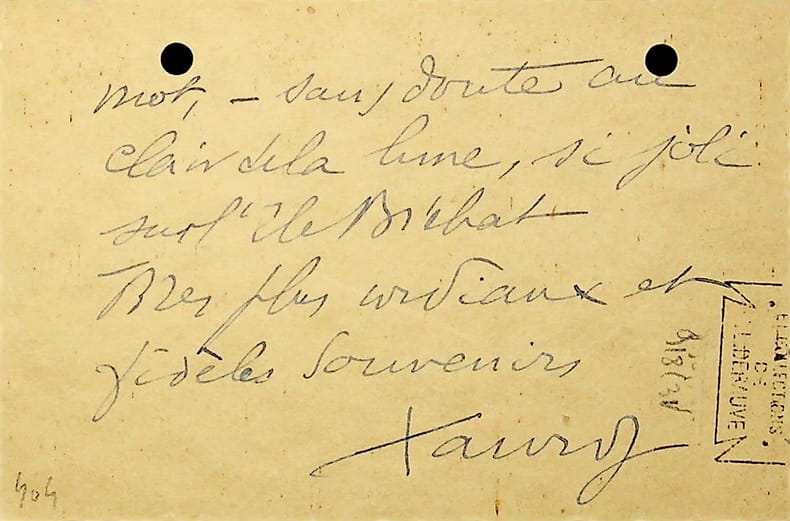 mot, – sans doute au
clair de la lune, si joli
sur l'île Bréhat
Mes plus cordiaux et
fidèles souvenirs
Xanrof
COLLECTIONS
DE
404